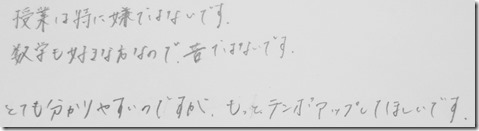 授業は特に嫌ではないです。
数学も好きな方なので、苦ではないです。
とても分かりやすいのですが、もっとテンポアップしてほしいです。